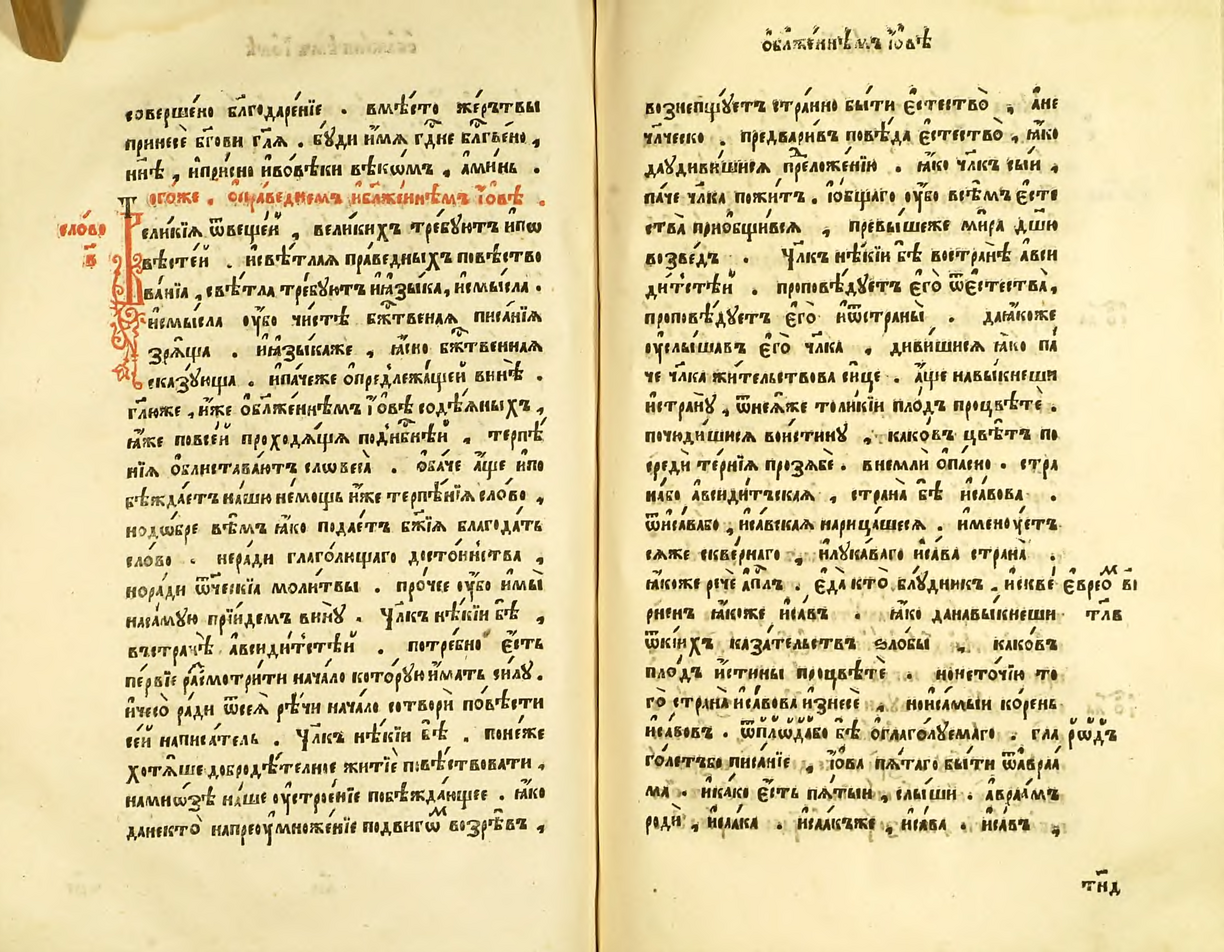 совершено бл҃годаре́нїе . вмѣ́сто же́рътвы
принесѐ бг҃ови гл҃я . бꙋ́ди и҆́мѧ гдⷭ҇не блⷭ҇гве́но ,
нн҃ѣ , ипри́сно ивовѣ́ки вѣкѡмъ , а҆ми́нь .
Тогоже . ѡ҆пра́веднемъ ибл҃же́ннѣмъ і҆́ѡвѣ .
сло́во
в҃
Вели́кїѧ ѿвеще́й , вели́кихъ тре́бꙋютъ ипѡ
вѣсте́й . исвѣ́тлаѧ пра́ведныхъ повѣ́ство
ва́нїѧ , свѣ́тла тре́бꙋютъ иꙗ҆зы́ка , исмы́сла .
исмы́сла оу҆́бо чи́стѣ бжⷭ҇твенаѧ писа́нїѧ
зрѧ́ща . иꙗ҆зы́каже , ꙗ҆́сно бжⷭ҇твеннаѧ
ска́зꙋюща . ипа́чеже ѡ҆предлежа́щей винѣ̀ .
гл҃ю́же , и҆́же ѡ҆бл҃же́ннѣмъ і҆́ѡвѣ содѣ́ѧныхъ ,
ꙗ҆́же повсе́й проходѧ́щїѧ под̾нб҃нѣ́й , терпѣ́
нїѧ ѡ҆блиста́ваютъ словеса̀ . ѻ҆ба́че а҆́ще ипо
бѣжда́етъ на́шꙋ не́мощь и҆́же терпѣ́нїѧ сло́во ,
нодѡ́бре вѣ́мъ ꙗ҆́ко подае́тъ бж҃їѧ благода́ть
сло́во . неради глаго́лющаго досто́инства ,
норади ѿч҃ескїѧ моли́твы . про́чее оу҆́бо и҆мы̀
наса́мꙋю прїи́демъ винꙋ̀ . Чл҃къ нѣ́кїи бѣ̀ ,
въстранѣ̀ а҆всиди́тстѣй . потре́бно є҆́сть
пе́рвїе расмотри́ти нача́ло котóрꙋю и҆́мать си́лꙋ .
ичесо̀ ра́ди ѿсеѧ̀ рѣ́чи нача́ло сотворѝ по́вѣсти
се́й написа́тель . Чл҃къ нѣ́кїи бѣ̀ . поне́же
хотѧ́ше добродѣ́телное житїѐ повѣ́ствовати ,
намнѡ́зѣ на́ше оу҆строе́нїе побѣжда́ющее . ꙗ҆́ко
данекто̀ напреоу҆множе́нїе по́двигѡⷨ возрѣ́въ ,
ѡ҆бл҃же́ннѣмъ і҆́ѡвѣ
возн̾епщꙋ́етъ стра́нно бы́ти є҆стество̀ , а҆не
чл҃ческо . предвари́въ повѣ́да є҆стество̀ , ꙗ҆́ко
даꙋдиви́шисѧ преложе́нїи . ꙗ҆́ко чл҃къ сы́и ,
па́че чл҃ка пожи́тъ . іѻ҆́бщаго оу҆́бо всѣ́мъ є҆сте
ства̀ приобщи́всѧ , превы́шеже ми́ра дш҃ю
возве́дъ . Чл҃къ нѣ́кїи бѣ̀ востранѣ̀ а҆вси
ди́тстѣй . проповѣ́дꙋетъ є҆го̀ ѿестества̀ ,
проповѣ́дꙋетъ є҆го̀ иѿстраны̀ . даꙗ҆́коже
оу҆слы́шавъ є҆го̀ чл҃ка , диви́шисѧ ꙗ҆́ко па́
че чл҃ка жи́тельствова си́це . а҆́ще навы́кнеши
истранꙋ̀ , ѿнеѧ́же толи́кїи пло́дъ процвѣтѐ .
почюди́шисѧ вои́стинꙋ , како́въ цвѣ́тъ по
средѝ те́рнїѧ прозѧбѐ . вне́мли о҆па́сно . стра
на́бо а҆всиди́тъскаѧ , страна̀ бѣ̀ и҆са́вова .
ѿиса́вабо , и҆са́вскаѧ нарица́шесѧ . именꙋ́етъ
сѧ́же скве́рнаго , илꙋка́ваго и҆са́ва страна̀ .
ꙗ҆́коже речѐ а҆пⷭ҇лъ . є҆да̀ кто̀ блꙋ́дникъ , искве́
рненъ ꙗ҆́коже и҆са́въ . ꙗ҆́ко данавы́кнеши
є҆вре́ѡⷨ в҃і
тл҃в
ѿки́хъ каза́тельствъ ѕло́бы , како́въ
пло́дъ и҆́стины процвѣтѐ . ноисточїю то
го̀ страна̀ и҆са́вова изнесѐ , ноиса́мыи ко́рень
и҆са́вовъ . ѿпло́да́бо бѣ̀ ѻ҆глаго́лꙋемаго . гла
рѡ́дъ
го́летъбо писа́нїе , і҆́ѡва пѧ́таго бы́ти ѿавраа
ма . ика́ко є҆́сть пѧ́тыи , слы́ши . а҆враа́мъ
родѝ , и҆саа́ка . и҆саа́къже , и҆са́ва . и҆са́въ ,
тн҃д